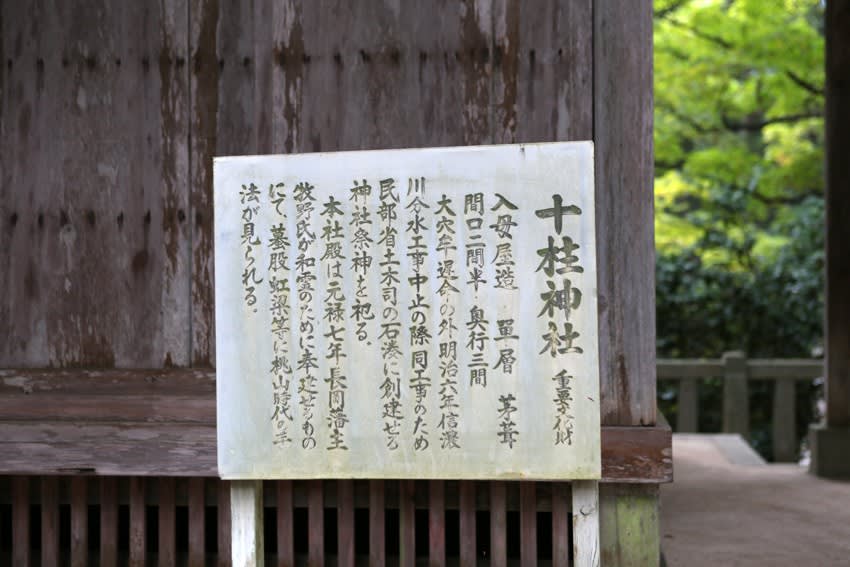 十桂神社 重要文化財
入母屋造 單層 茅葺
間口二間半・奥行三間
大穴牟遅命の外明治六年信濃
川分水工事中止の際同工事のため
民部省土木司の石湊に創建せる
神社祭神を祀る。
本社殿は元禄七年長岡藩主
牧野氏が和霊のために奉建せるもの
にて、蟇股、虹梁等に桃山時代の手
法が見られる。